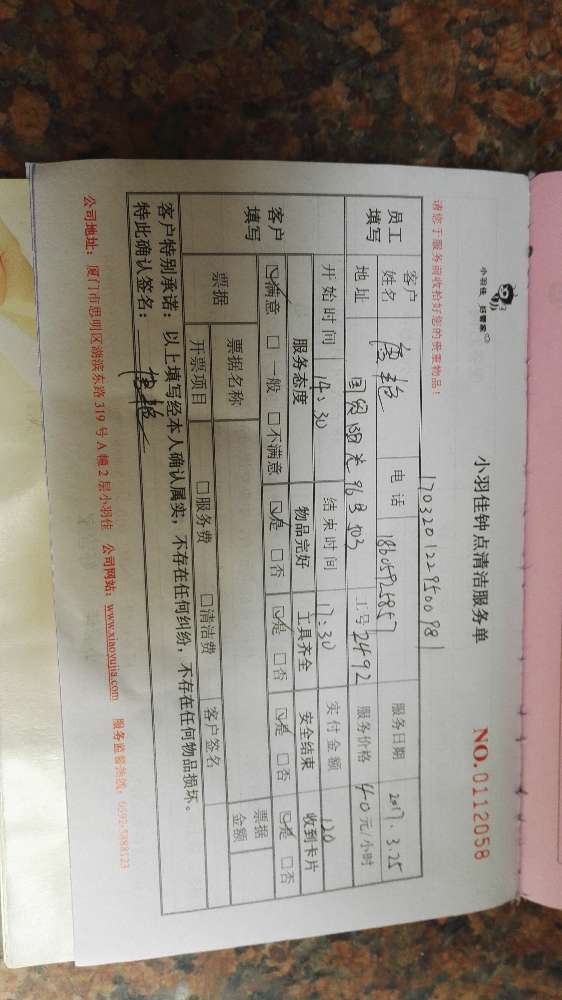 小羽佳 好管家
小羽佳钟点清洁服务单 NO.0112058
1703201229500981
请您于服务前收拾好您的贵重物品!
员工填写 客户姓名 电话 服务日期 2017.3.25
地址 国贸阳光 96 502 工号 2492 服务价格 40元/小时
开始时间 14:30 结束时间 17:30 实付金额 120
客户填写 服务态度 物品完好 工具齐全 安全结束 收到卡片
☑满意 □一般 □不满意 ☑是 □否 ☑是 □否 ☑是 □否 ☑是 □否
票据 票据名称 票据金额
开票项目 □服务费 □清洁费 客户签名
客户特别承诺:以上填写经本人确认属实,不存在任何纠纷,不存在任何物品损坏。
特此确认签名:
公司地址:厦门市思明区湖滨东路 319 号 A 幢 2 层小羽佳 公司网站:www.xiaoyujia.com 服务监督热线:0592-5088123